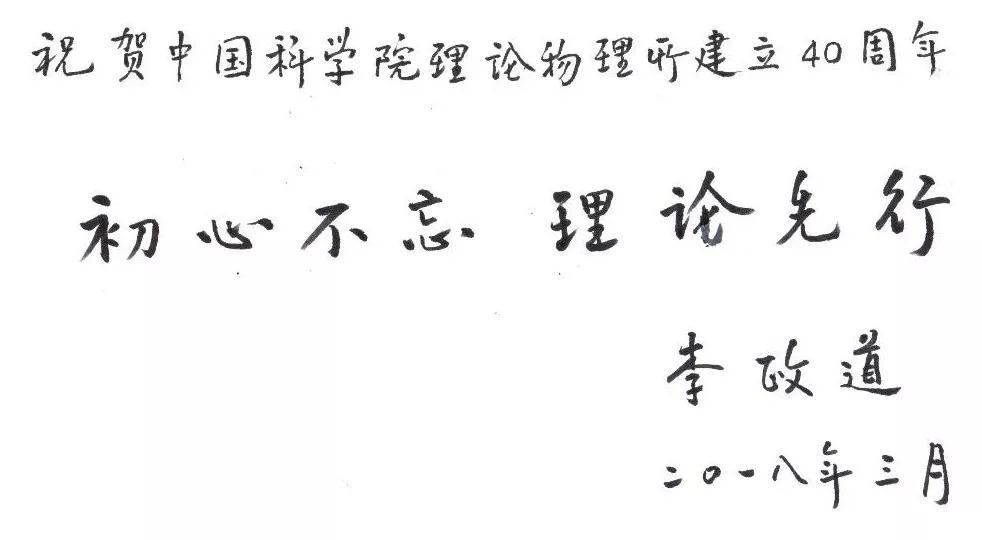 祝贺中国科学院理论物理所建立40周年
初心不忘 理论先行
李政道
二〇一八年三月